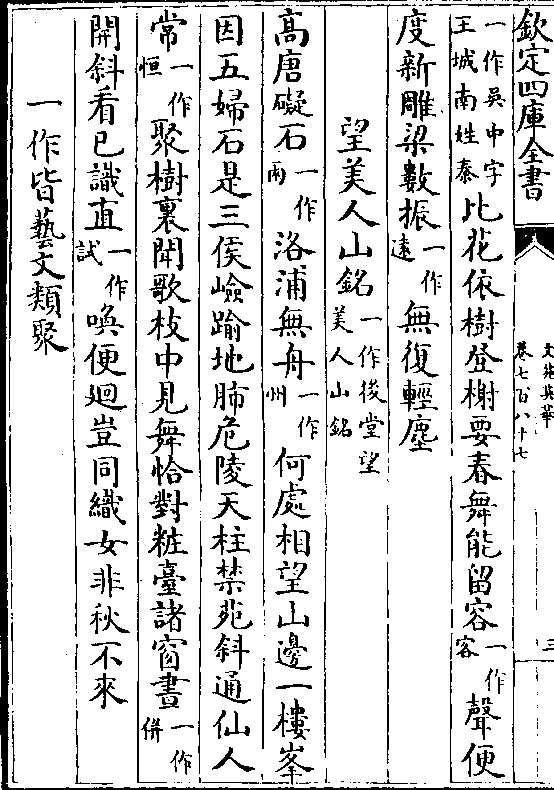 欽定四庫全書
文苑英華
卷七百八十七
三
一作吳中字王城南姓秦比花依樹登榭要春舞能留容一作客聲便
度新雕梁數振一作遠無復輕塵
望美人山銘一作後堂望美人山銘
高唐礙石一作雨洛浦無舟一作州何處相望山邊一樓峯
因五婦石是三侯嶮踰地肺危陵天柱禁苑斜通仙人
常一作恒聚樹裏聞歌枝中見舞恰對粧臺諸窗書一作併
開斜看已識直一作試喚便迴豈同織女非秋不來
一作皆藝文類聚